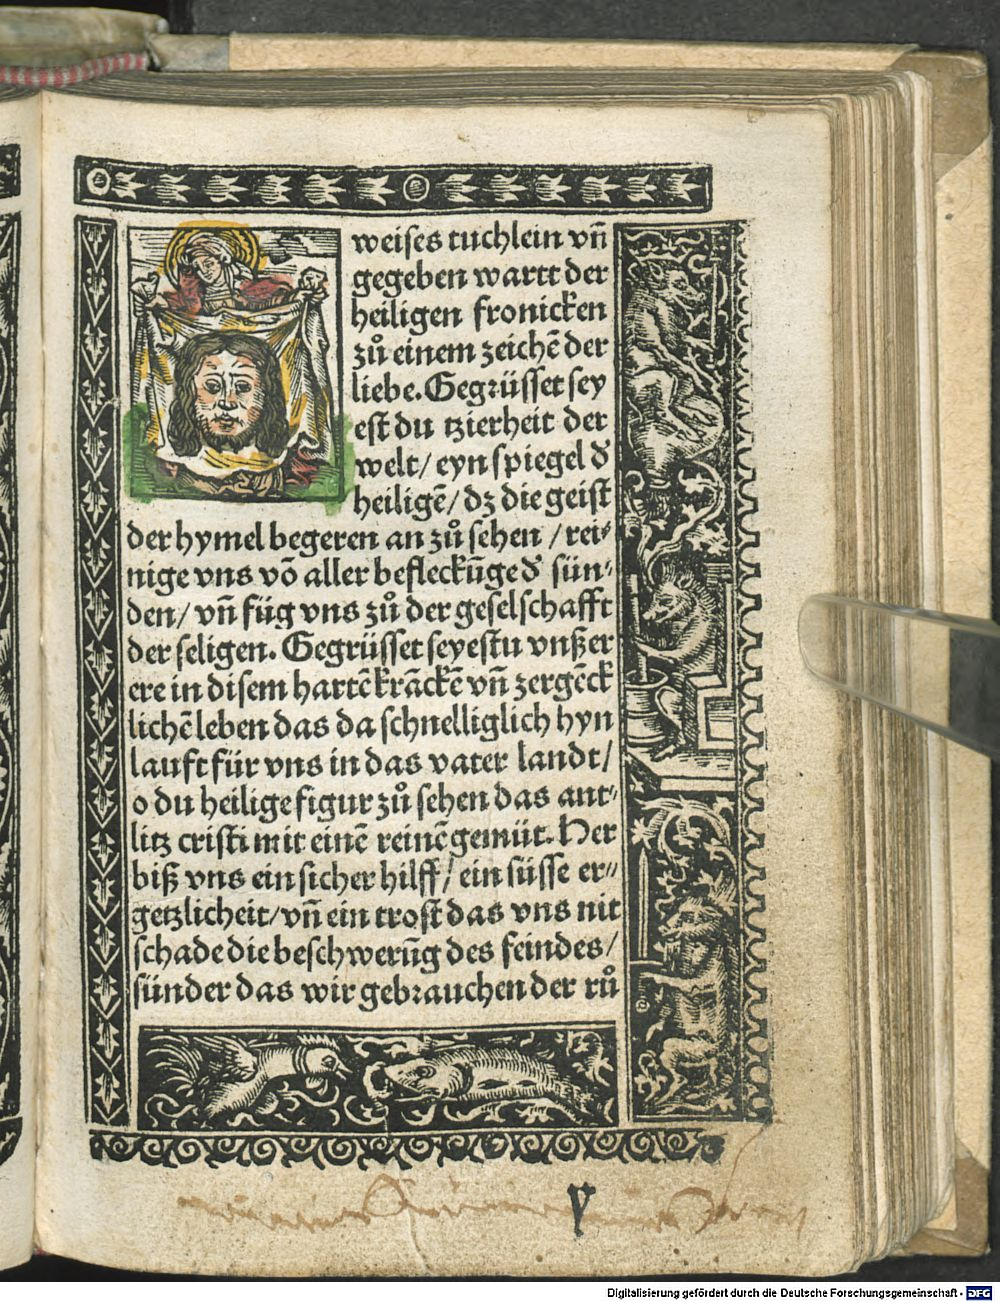 weises tuchlein vn̄
gegeben wartt der
heiligen fronicken
zů einem zeichē der
liebe. Gegrüsset sey
est du tzierheit der
welt/ eyn spiegel d̄
heiligē/ dz die geist
der hymel begeren an zů sehen / rei⸗
nige vns vō aller befleckūge d̄ sün⸗
den/ vn̄ füg vns zů der geselschafft
der seligen. Gegrüsset seyestu vnßer
ere in disem hartē krāckē vn̄ zergēck
lichē leben das da schnelliglich hyn
lauft für vns in das vater landt/
o du heilige figur zů sehen das ant⸗
litz cristi mit einē reinē gemüt. Her
biß vns ein sicher hilff/ ein süsse er⸗
getzlicheit/ vn̄ ein trost das vns nit
schade die beschwerūg des feindes/
sünder das wir gebrauchen der rů
Digitalisierung gefördert durch die Deutsche Forschungsgemeinschaft - DFG